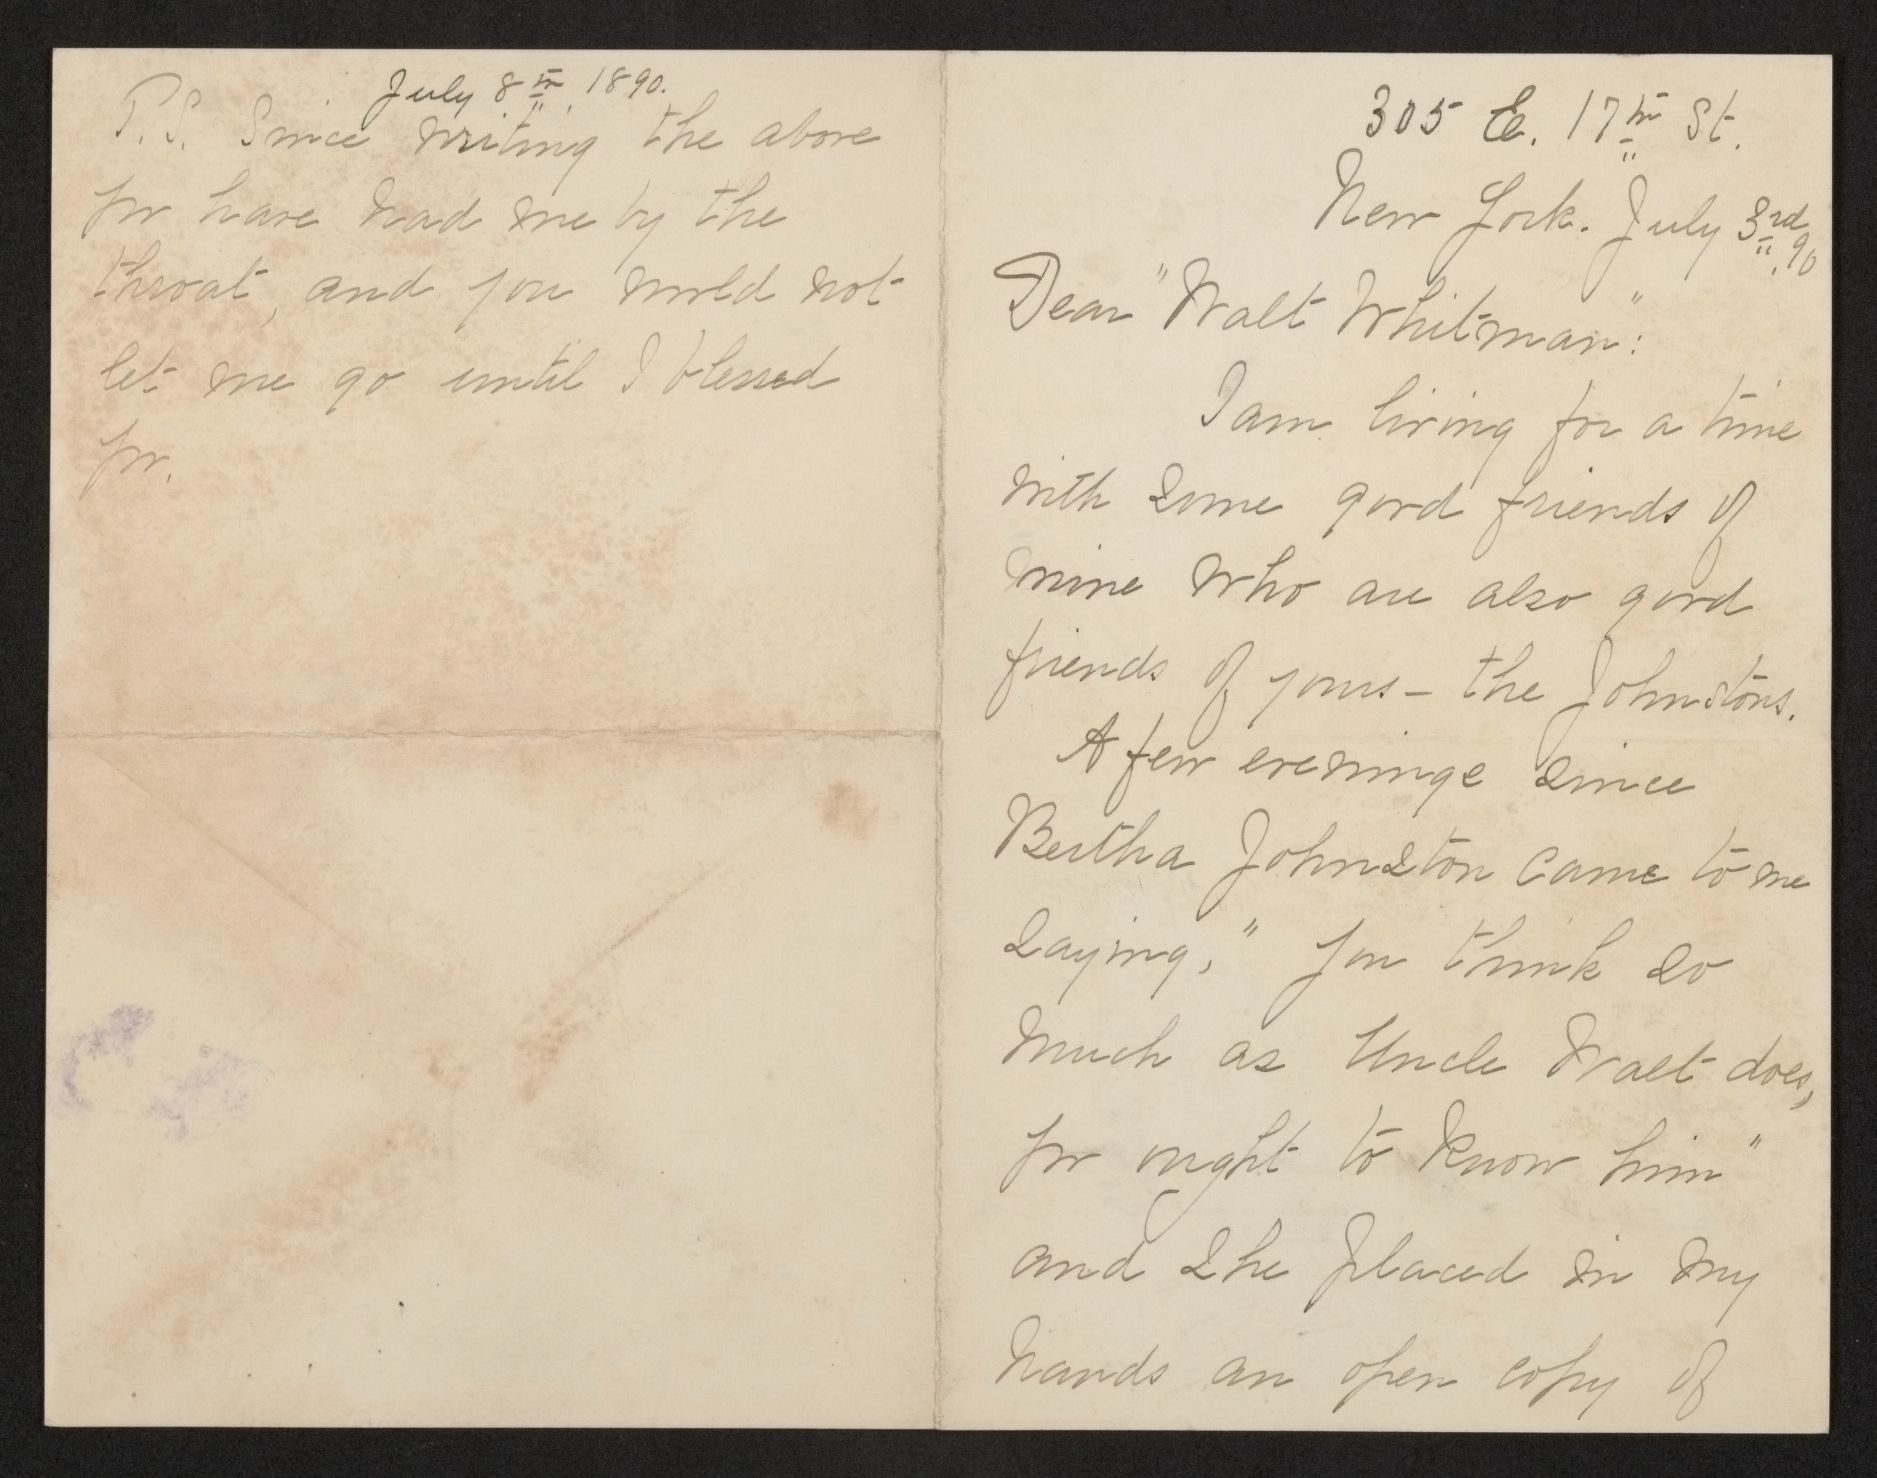 July 8th, 1890.
P.S. Since writing the above
you have had me by the
throat, and you would not
let me go until I blessed
you.
305 E. 17th St.
New York. July 3rd, 90
Dear "Walt Whitman":
I am living for a time
with some good friends of
mine who are also good
friends of yours – the Johnstons.
A few evenings since
Bertha Johnston came to me
saying, " You think so
much as Uncle Walt does,
you ought to know him"
and she placed in my
hands an open copy of